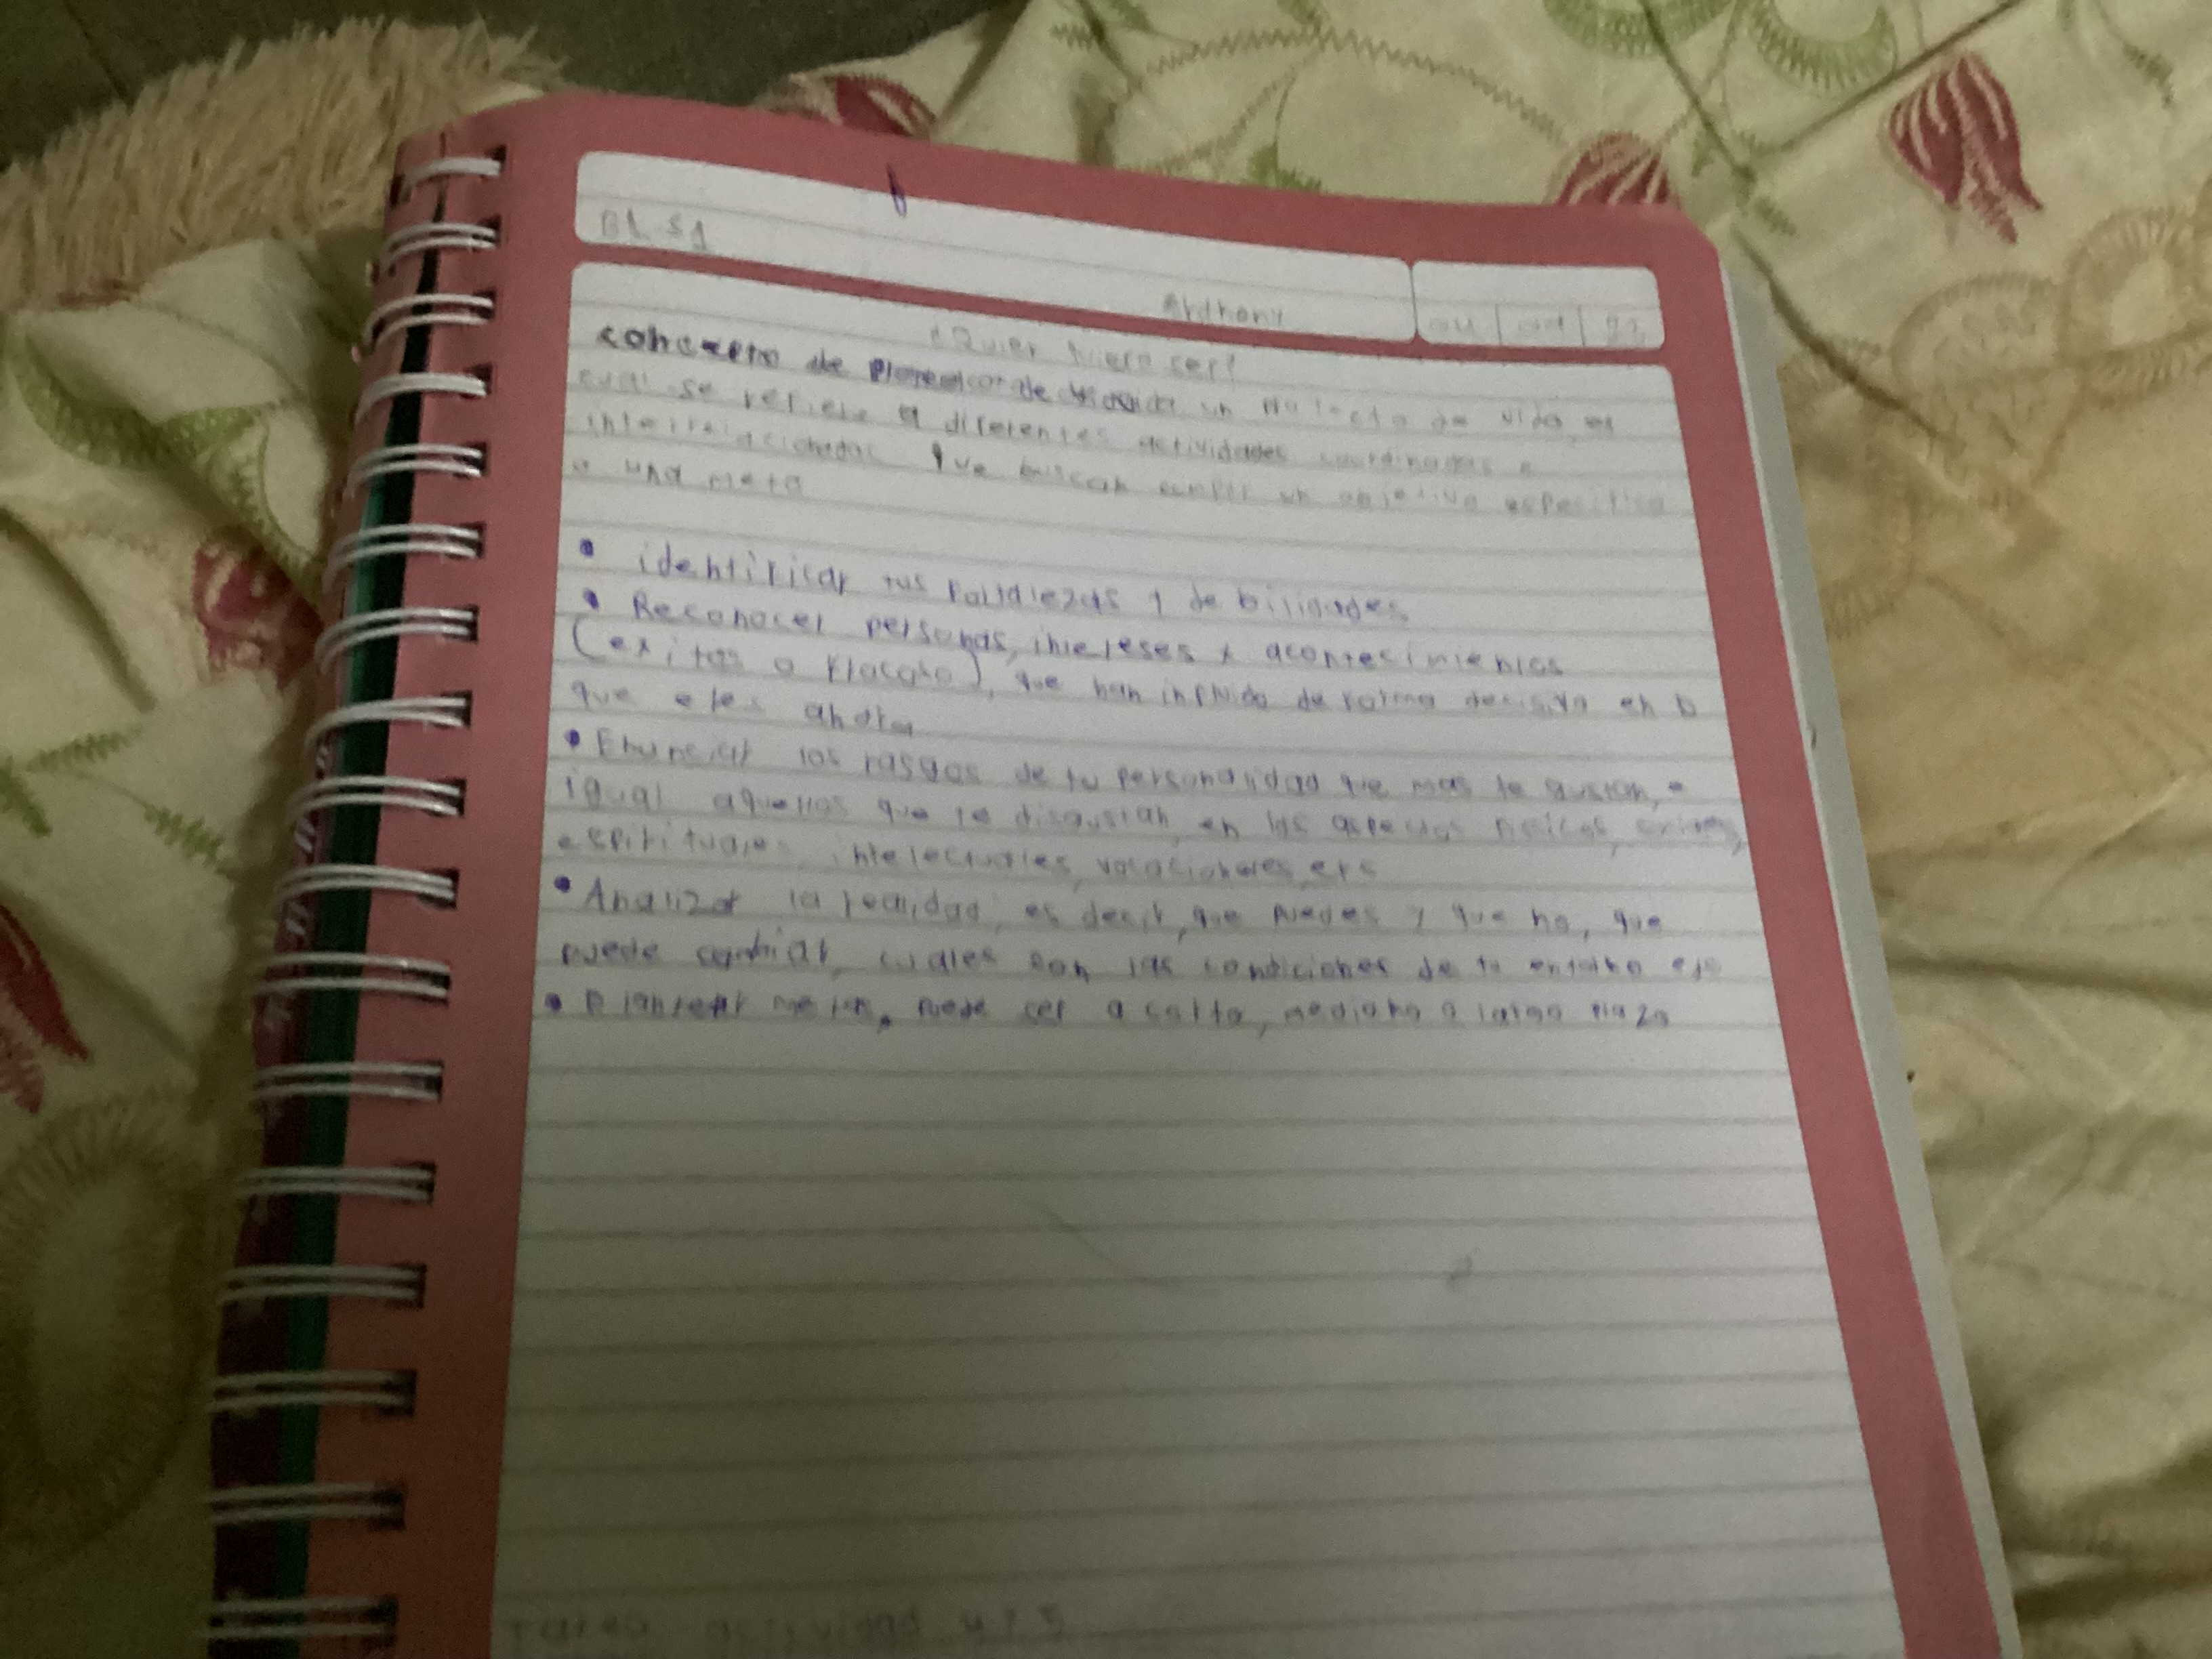 B1 S1
Anthony
¿Quien quiero ser?
concepto de proyecto de vida un proyecto de vida, es
cual se refiere a diferentes actividades coordinadas e
interrelacionadas que buscan cumplir un objetivo especifico
o una meta
• identificar tus fortalezas y debilidades
• Reconocer personas, intereses y acontecimientos
(exitos o fracaso), que han influido de forma decisiva en lo
que eres ahora
• Enunciar los rasgos de tu personalidad que mas te gustan, e
igual aquellos que te disgustan, en los aspectos fisicos,
espirituales, intelectuales, vocacionales, etc
• Analizar la realidad, es decir, que puedes y que no, que
puede cambiar, cuales son las condiciones de tu entorno
• Plantear metas, puede ser a corto, mediano o largo plazo
tarea actividad 4 y 5